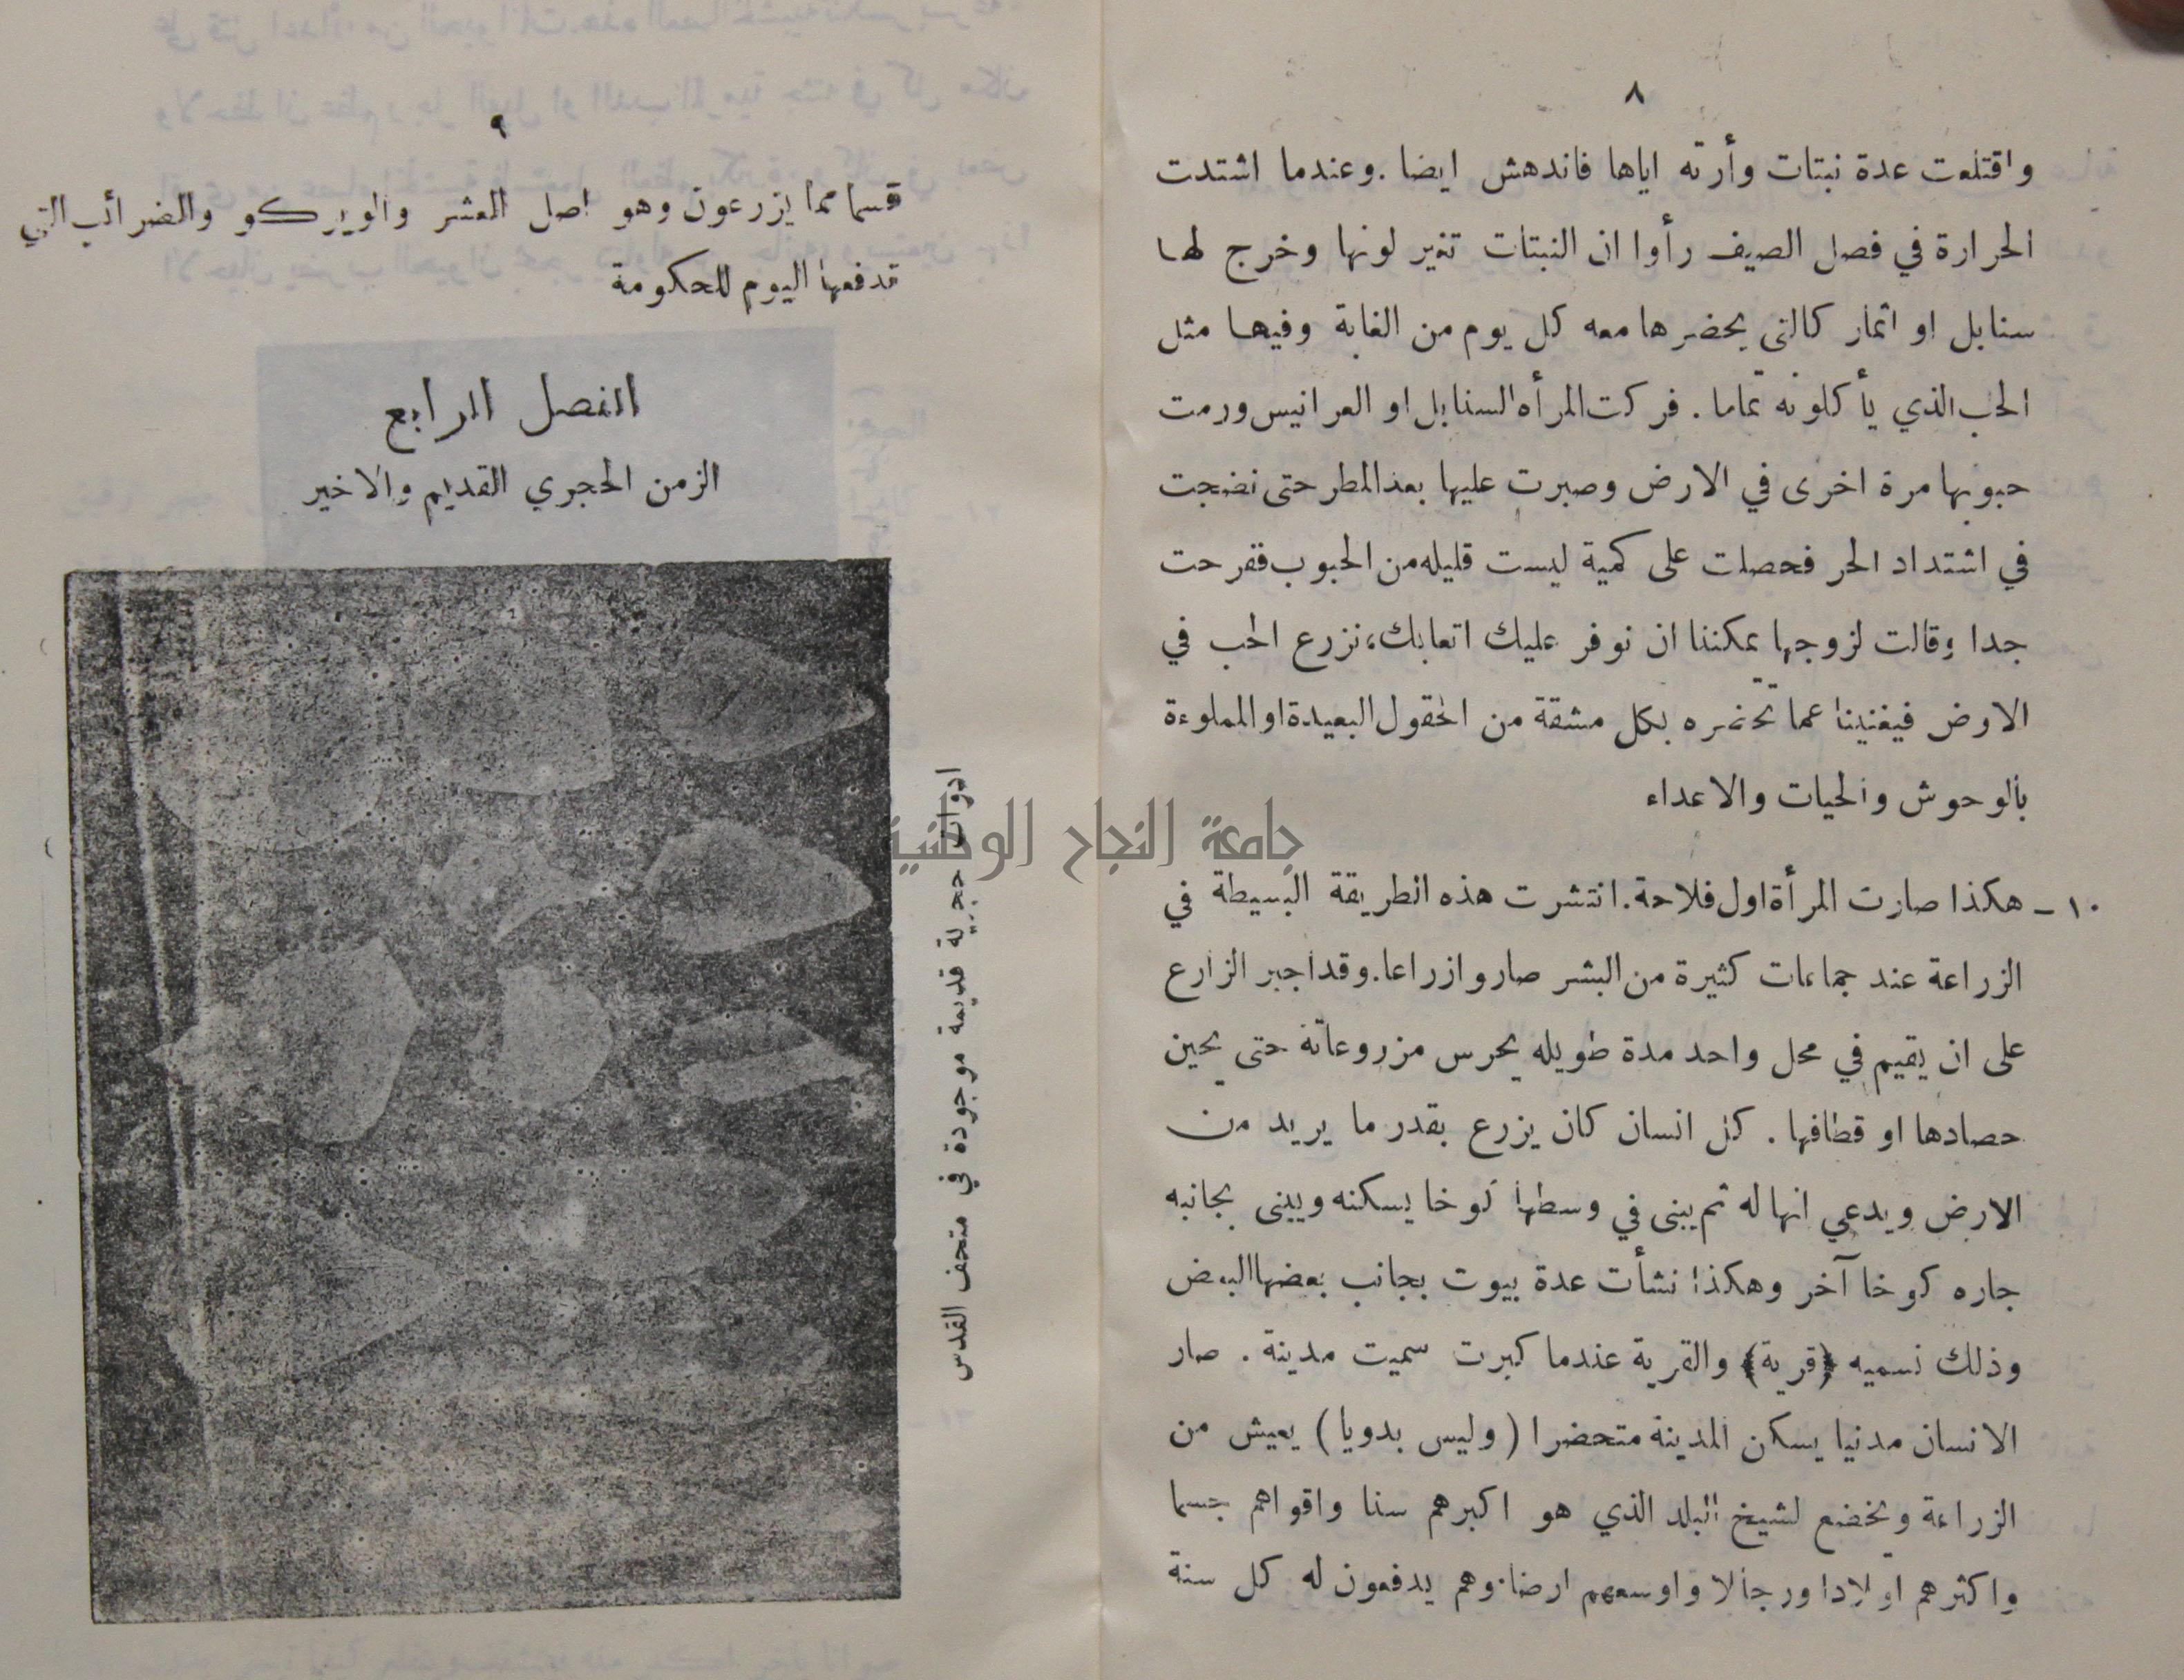 ٨
واقتلعت عدة نبتات وأرته اياها فاندهش ايضا . وعندما اشتدت
الحرارة في فصل الصيف رأوا ان النبتات تغير لونها وخرج لها
سنابل او اثمار كالتي يحضرها معه كل يوم من الغابة وفيها مثل
الحب الذي يأكلونه تماما . فركت المرأه السنابل او العرانيس ورمت
حبوبها مرة اخرى في الارض وصبرت عليها بعد المطر حتى نضجت
في اشتداد الحر فحصلت على كمية ليست قليله من الحبوب ففرحت
جدا وقالت لزوجها يمكننا ان نوفر عليك اتعابك، نزرع الحب في
الارض فيغنينا عما تحضره بكل مشقة من الحقول البعيدة او المملوءة
بالوحوش والحيات والاعداء
١٠ – هكذا صارت المرأة اول فلاحة . انتشرت هذه الطريقة البسيطة في
الزراعة عند جماعات كثيرة من البشر صاروا زراعا . وقد اجبر الزارع
على ان يقيم في محل واحد مدة طويله يحرس مزروعاته حتى يحين
حصادها او قطافها . كل انسان كان يزرع بقدر ما يريد من
الارض ويدعي انها له ثم يبنى في وسطها كوخا يسكنه ويبنى بجانبه
جاره كوخا آخر وهكذا نشأت عدة بيوت بجانب بعضها البعض
وذلك نسميه ﴿قرية﴾ والقرية عندما كبرت سميت مدينة . صار
الانسان مدنيا يسكن المدينة متحضرا ( وليس بدويا ) يعيش من
الزراعة ويخضع لشيخ البلد الذي هو اكبرهم سنا واقواهم جسما
واكثرهم اولادا ورجالا واوسعهم ارضا . وهم يدفعون له كل سنة
٩
قسما مما يزرعون وهو اصل العشر والويركو والضرائب التي
ندفعها اليوم للحكومة
الفصل الرابع
الزمن الحجري القديم والاخير
ادوات حجرية قديمة موجودة في متحف القدس
جامعة النجاح الوطنية